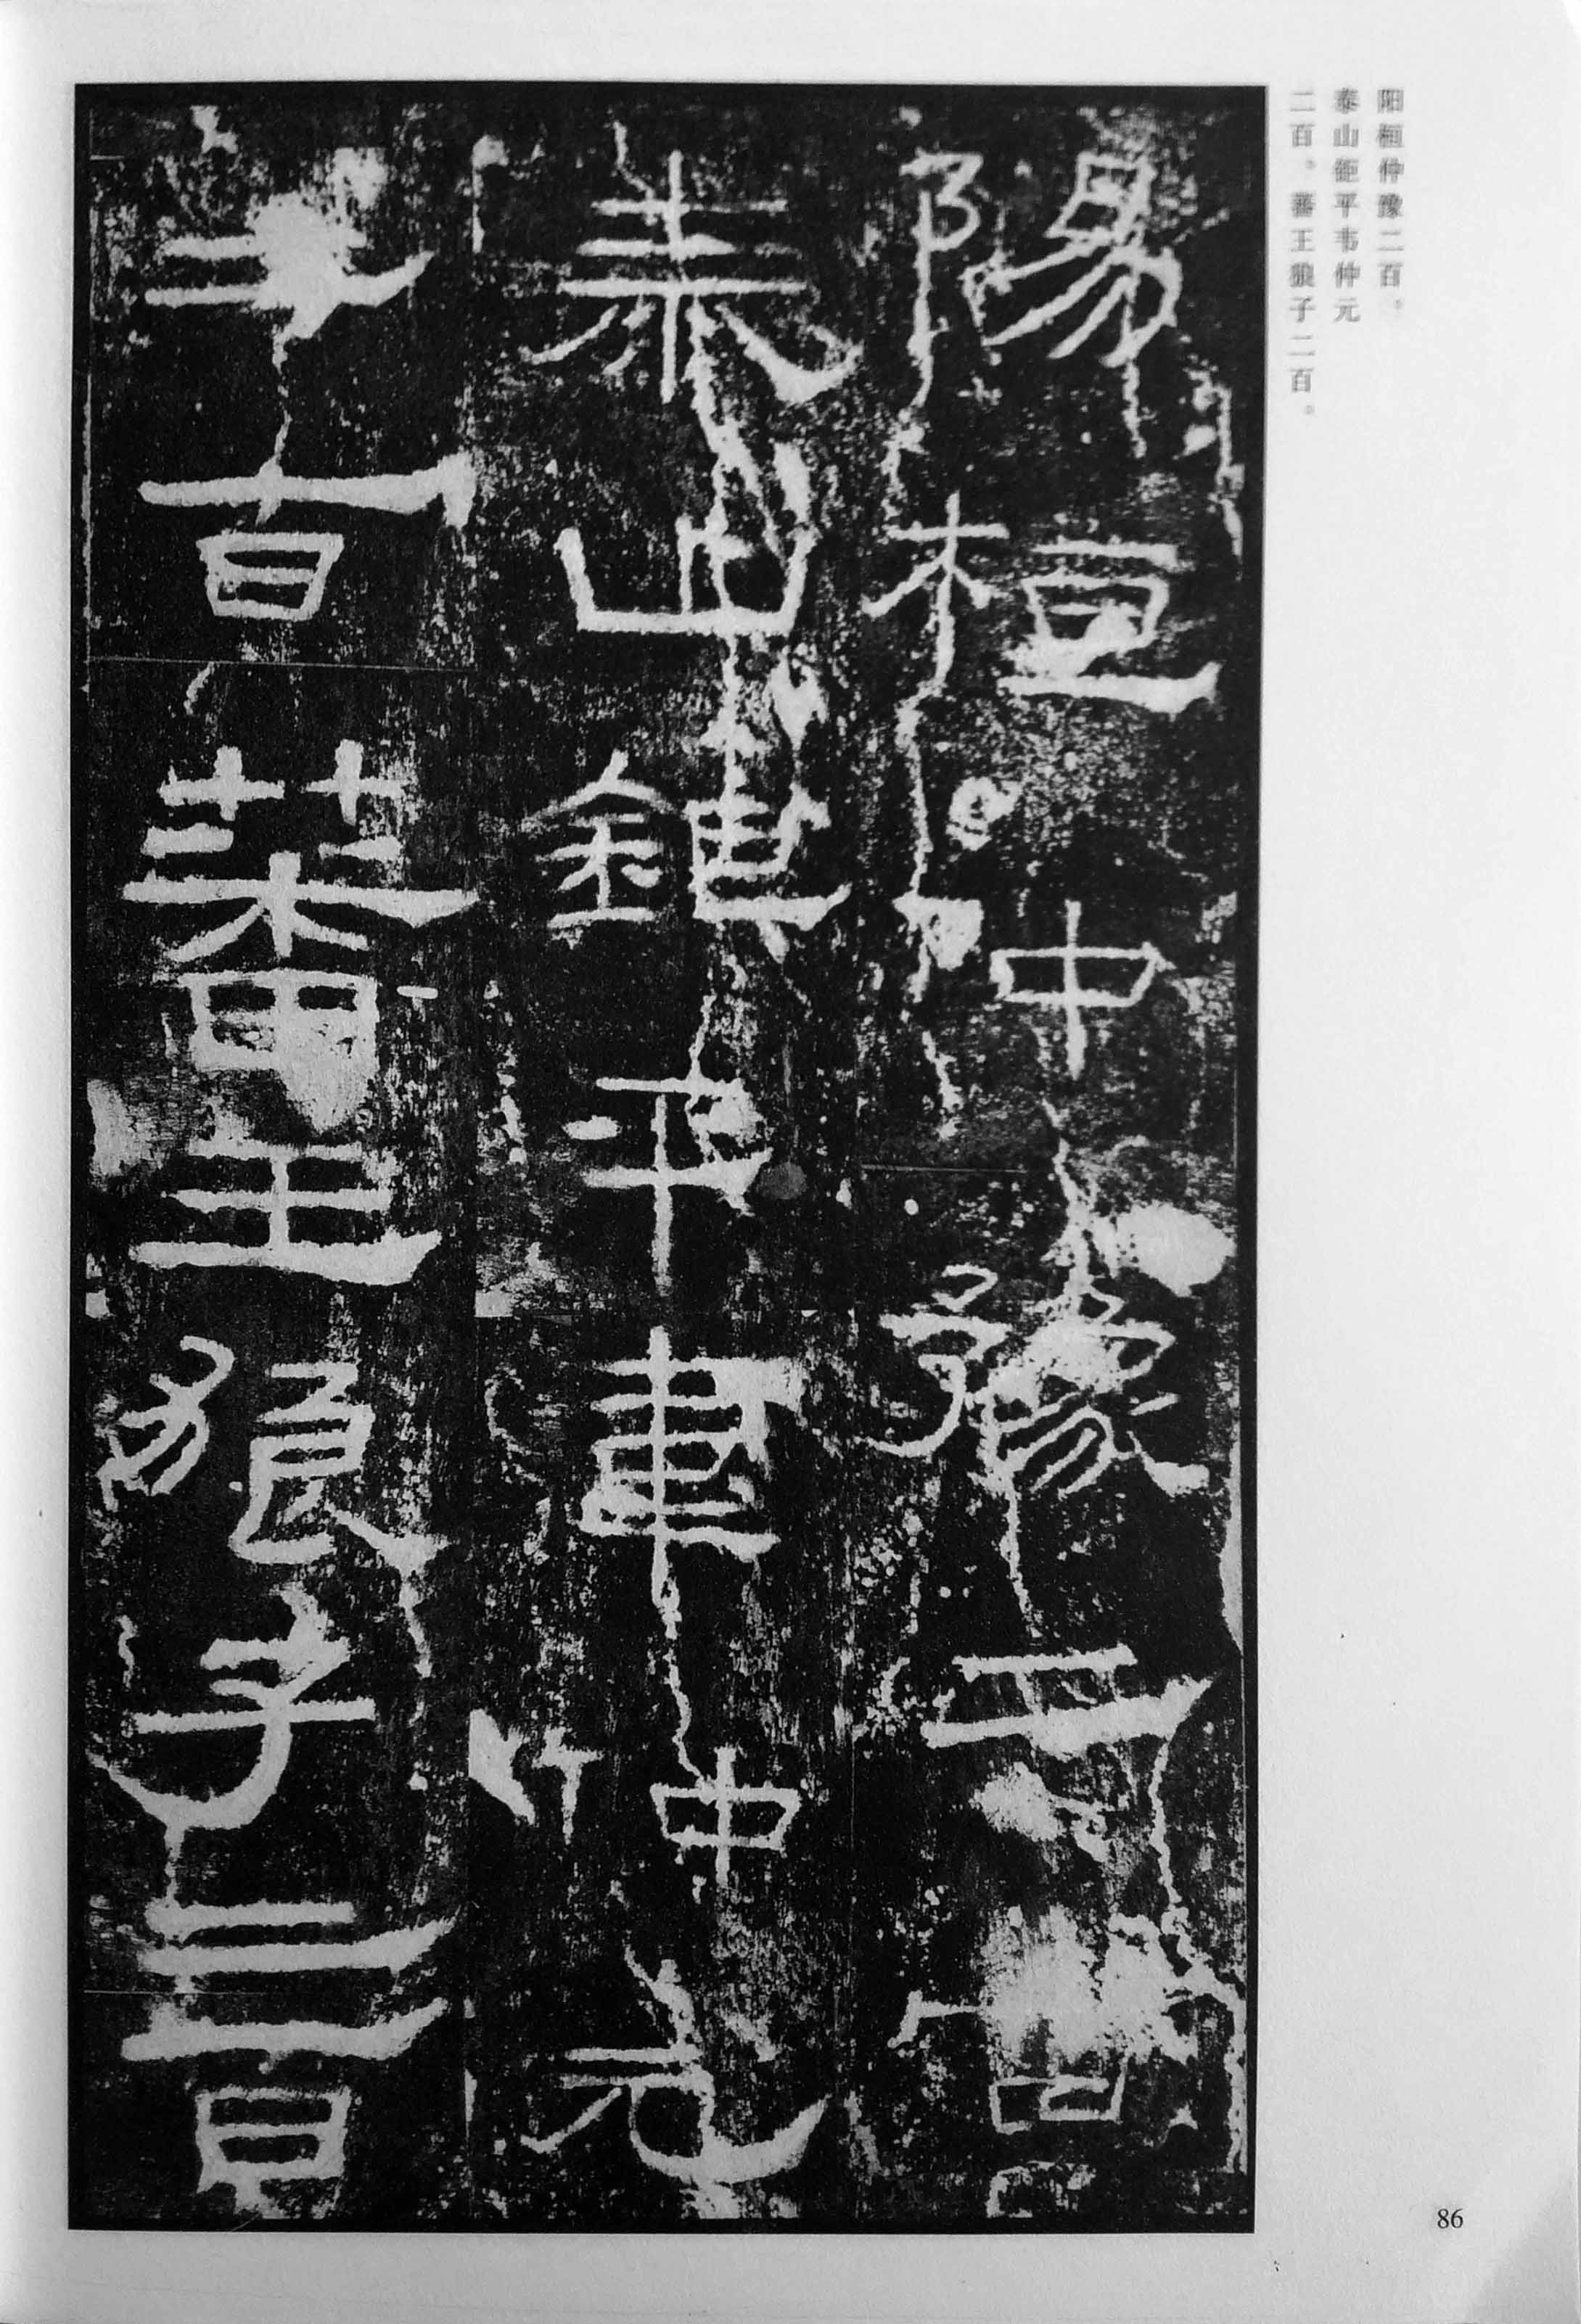 阳桓仲豫二百。
泰山钜平韦仲元
二百。蕃王狼子二百。
陽桓仲豫二百
泰山鉅平韋仲元
二百蕃王狼子二百
86